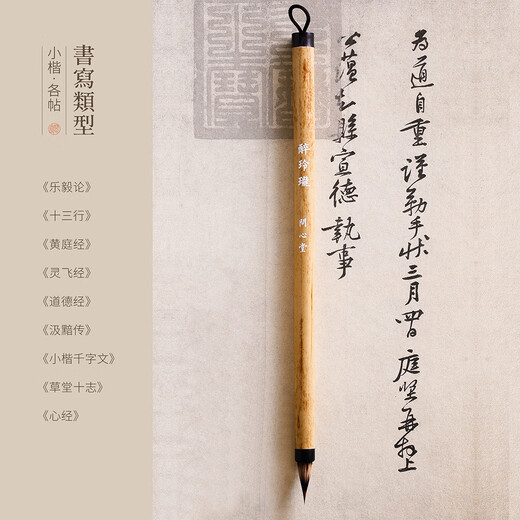 書寫類型
小楷·各帖
《乐毅论》
《十三行》
《黄庭经》
《灵飞经》
《道德经》
《汲黯传》
《小楷千字文》
《草堂十志》
《心经》
醉玲瓏
問心堂
為道自重謹勒手狀三月四日庭堅再拜上
公蘊知縣宣德執事